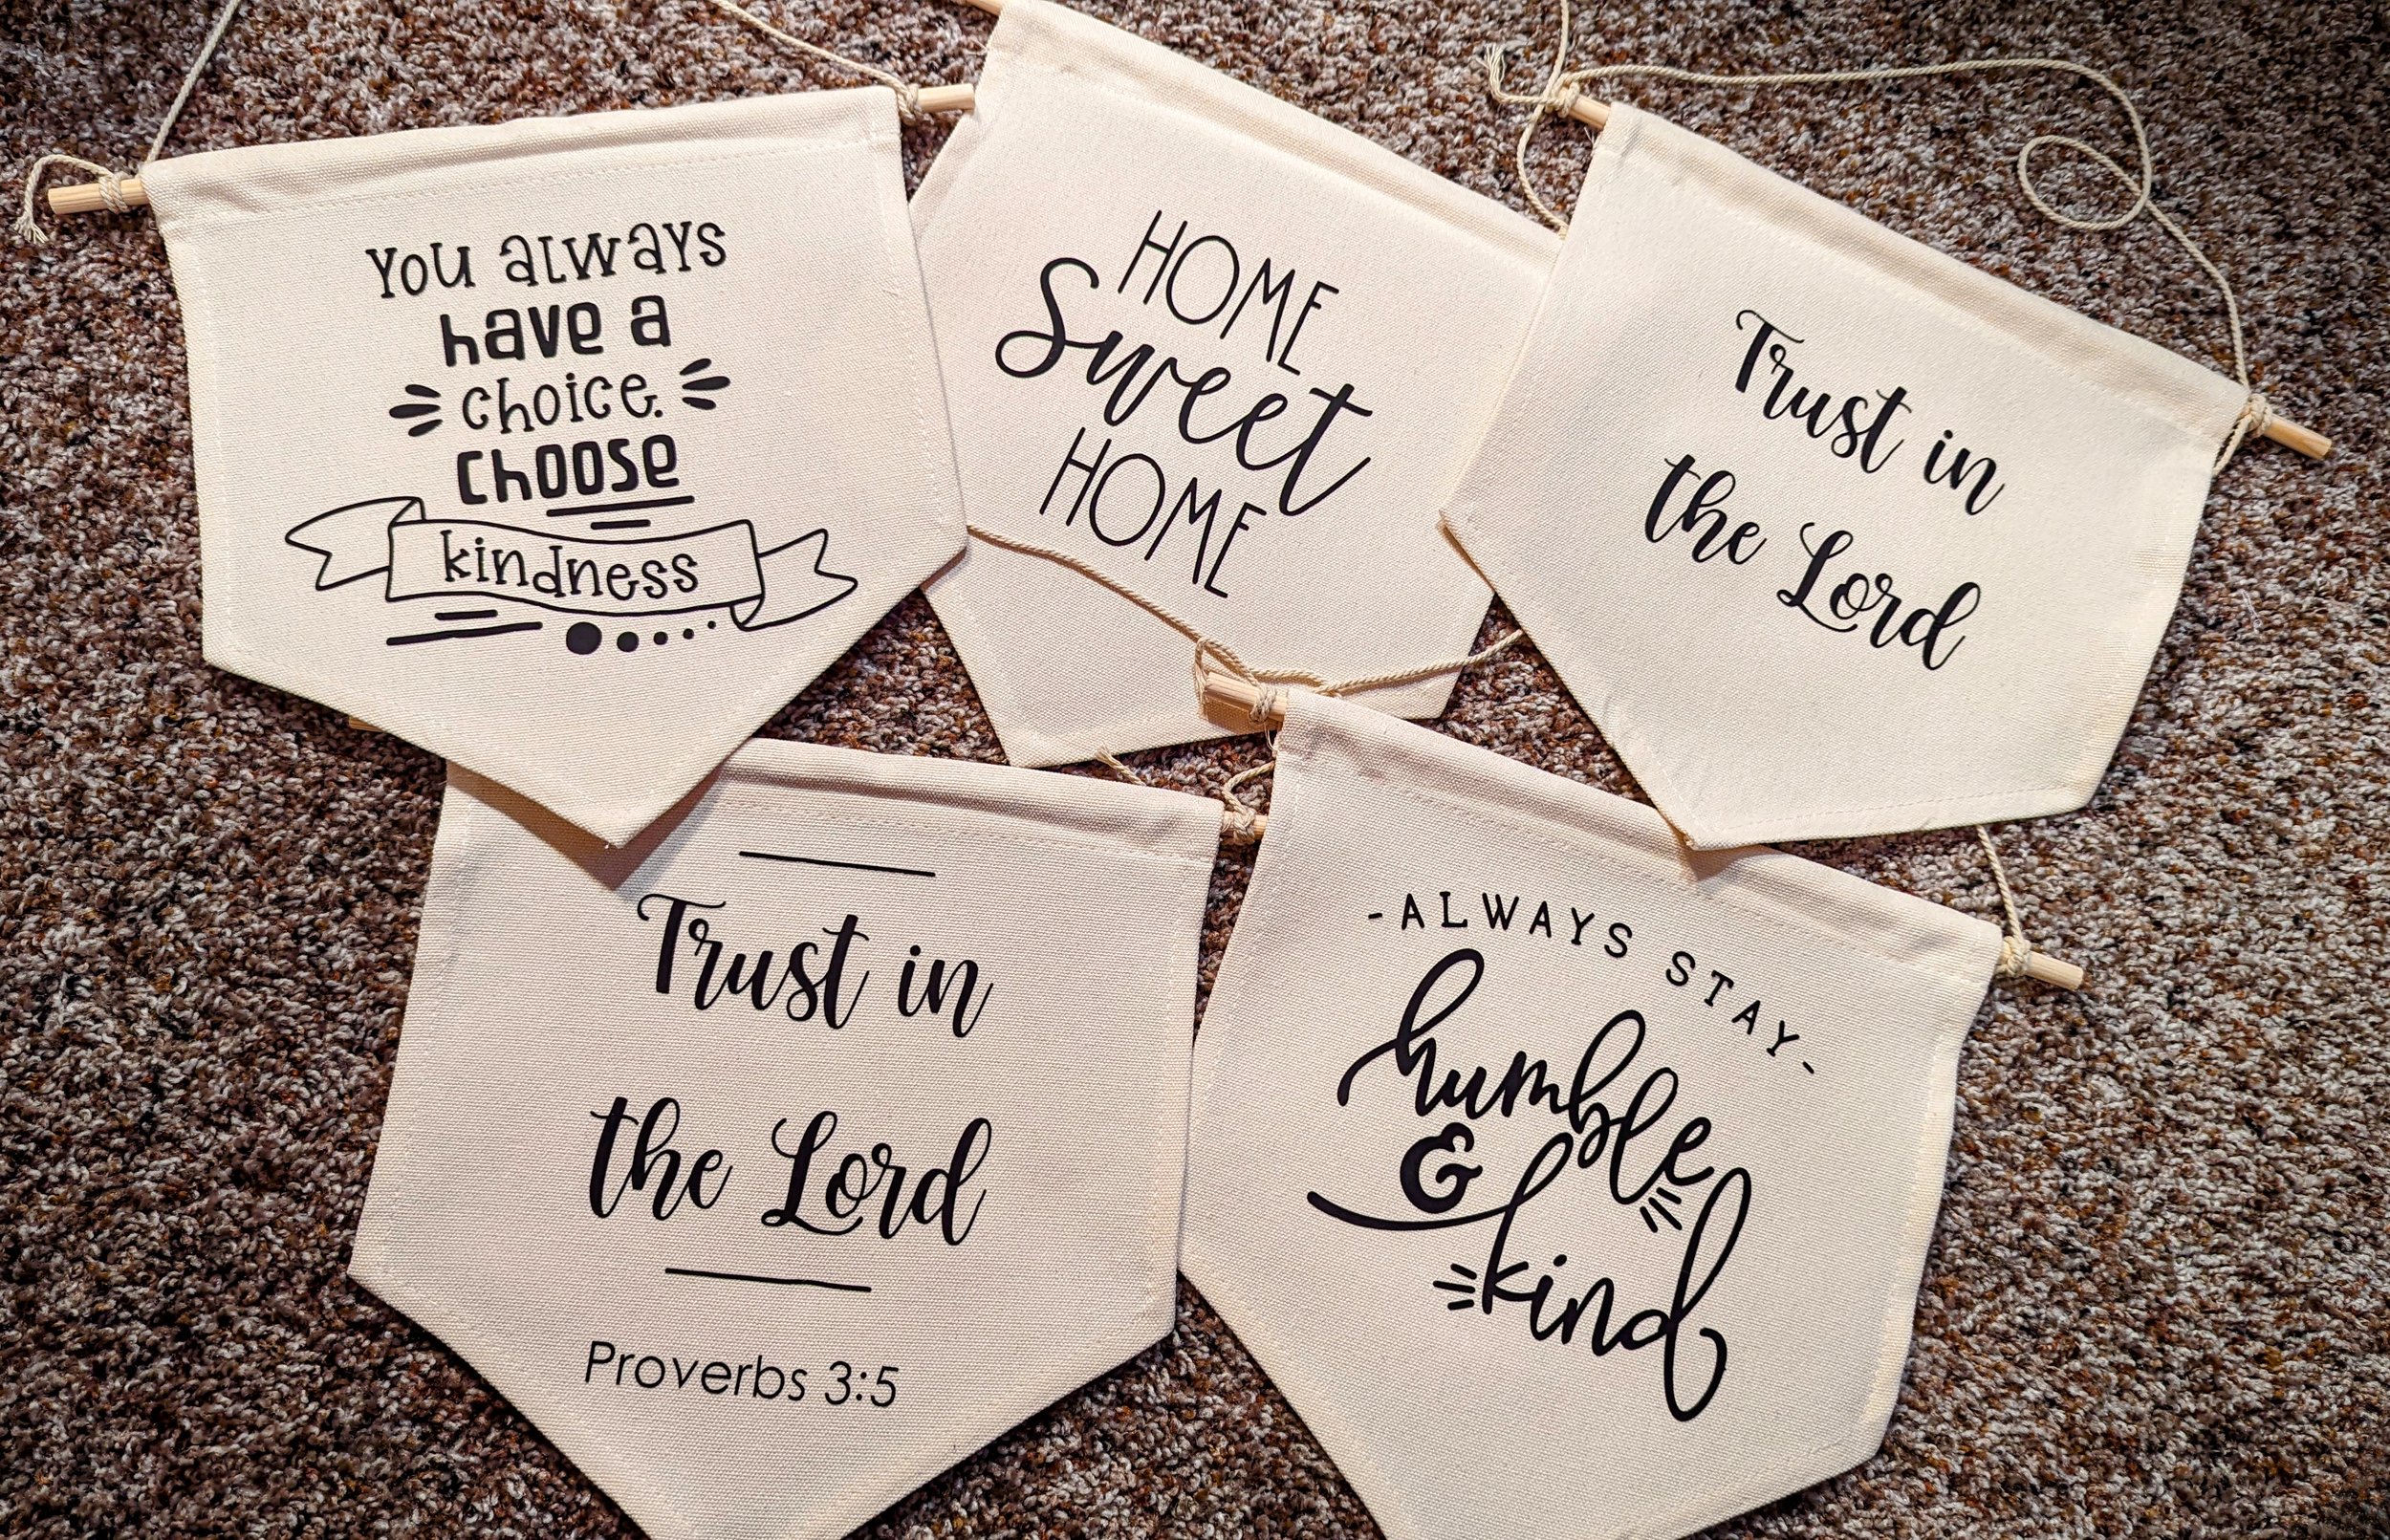 You always
have a
choice.
choose
kindness
HOME
Sweet
HOME
Trust in
the Lord
Trust in
the Lord
Proverbs 3:5
-ALWAYS STAY-
humble
&
kind